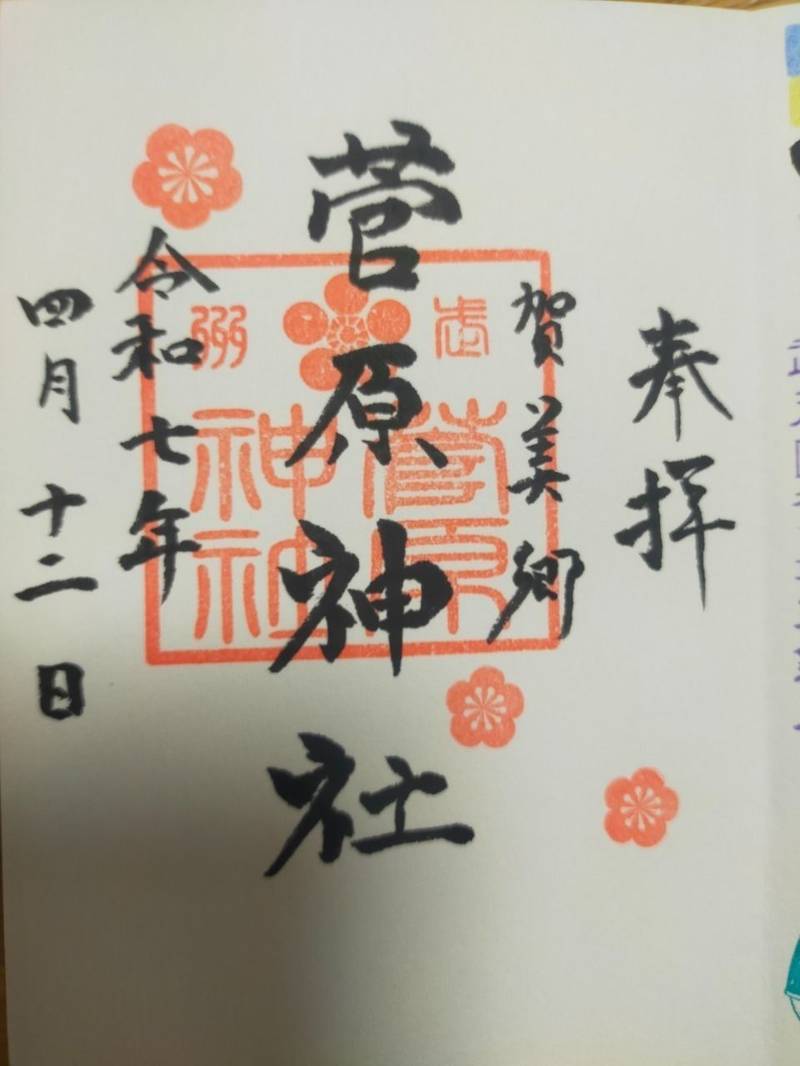 奉拝
賀美郷
菅原神社
令和七年
四月十二日
武州
菅原
神社